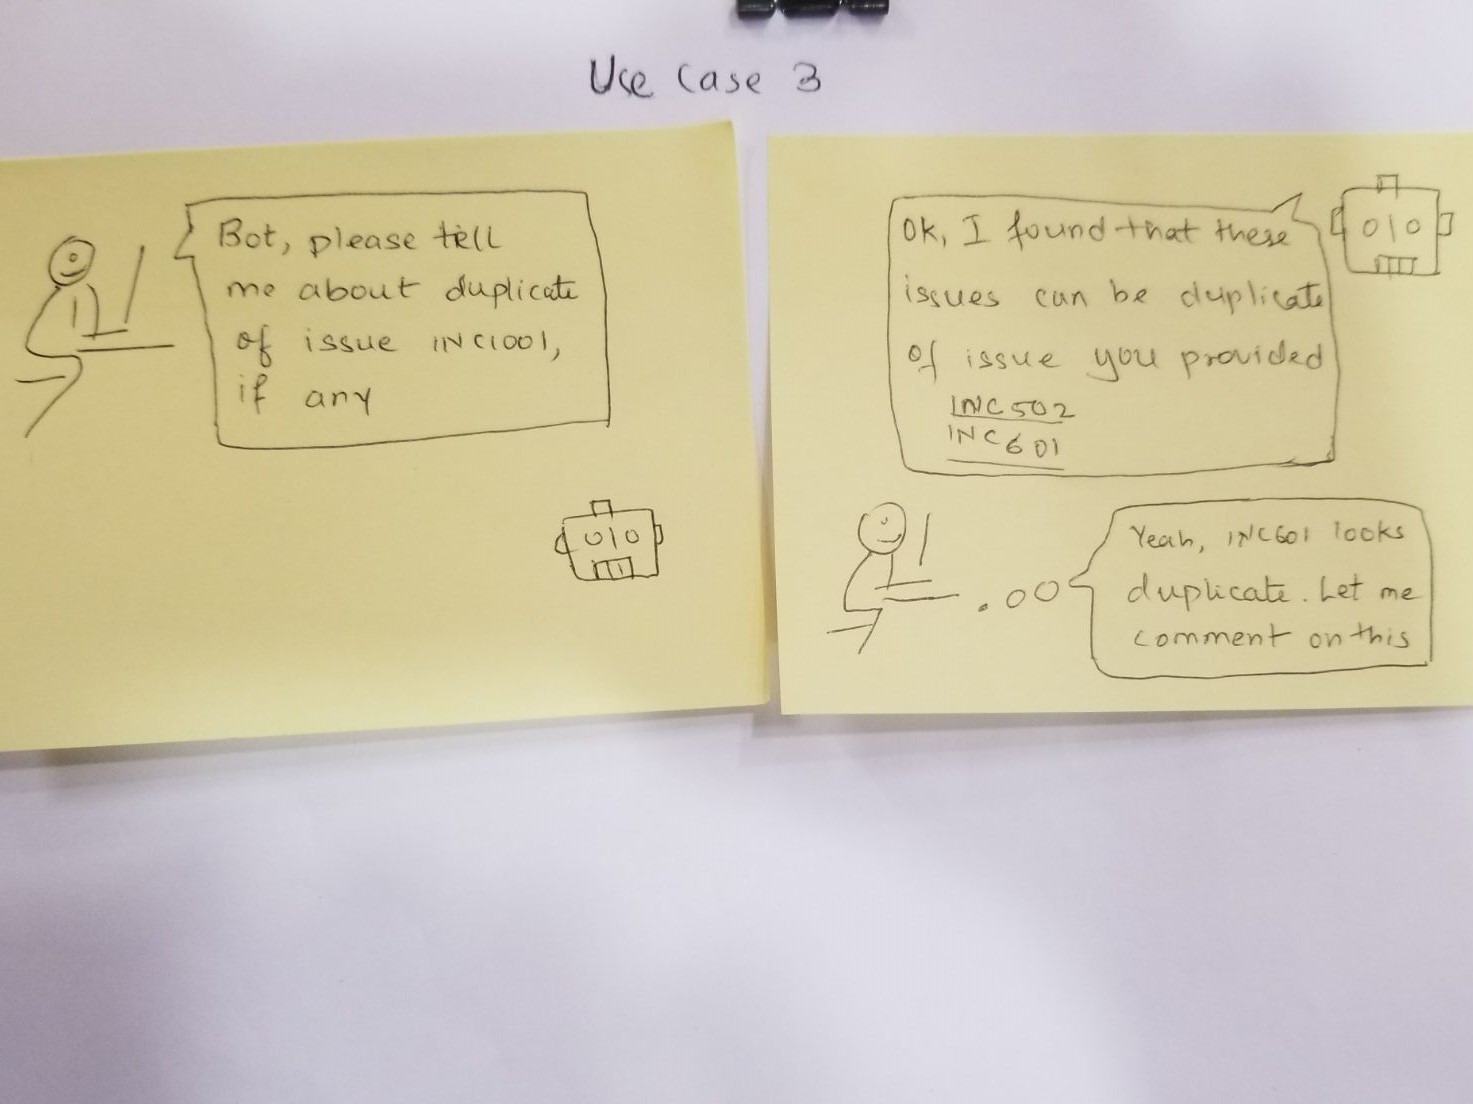 Use Case 3
Bot, please tell
me about duplicate
of issue INC1001,
if any
Ok, I found that these
issues can be duplicate
of issue you provided
INC502
INC601
Yeah, INC601 looks
duplicate. Let me
comment on this